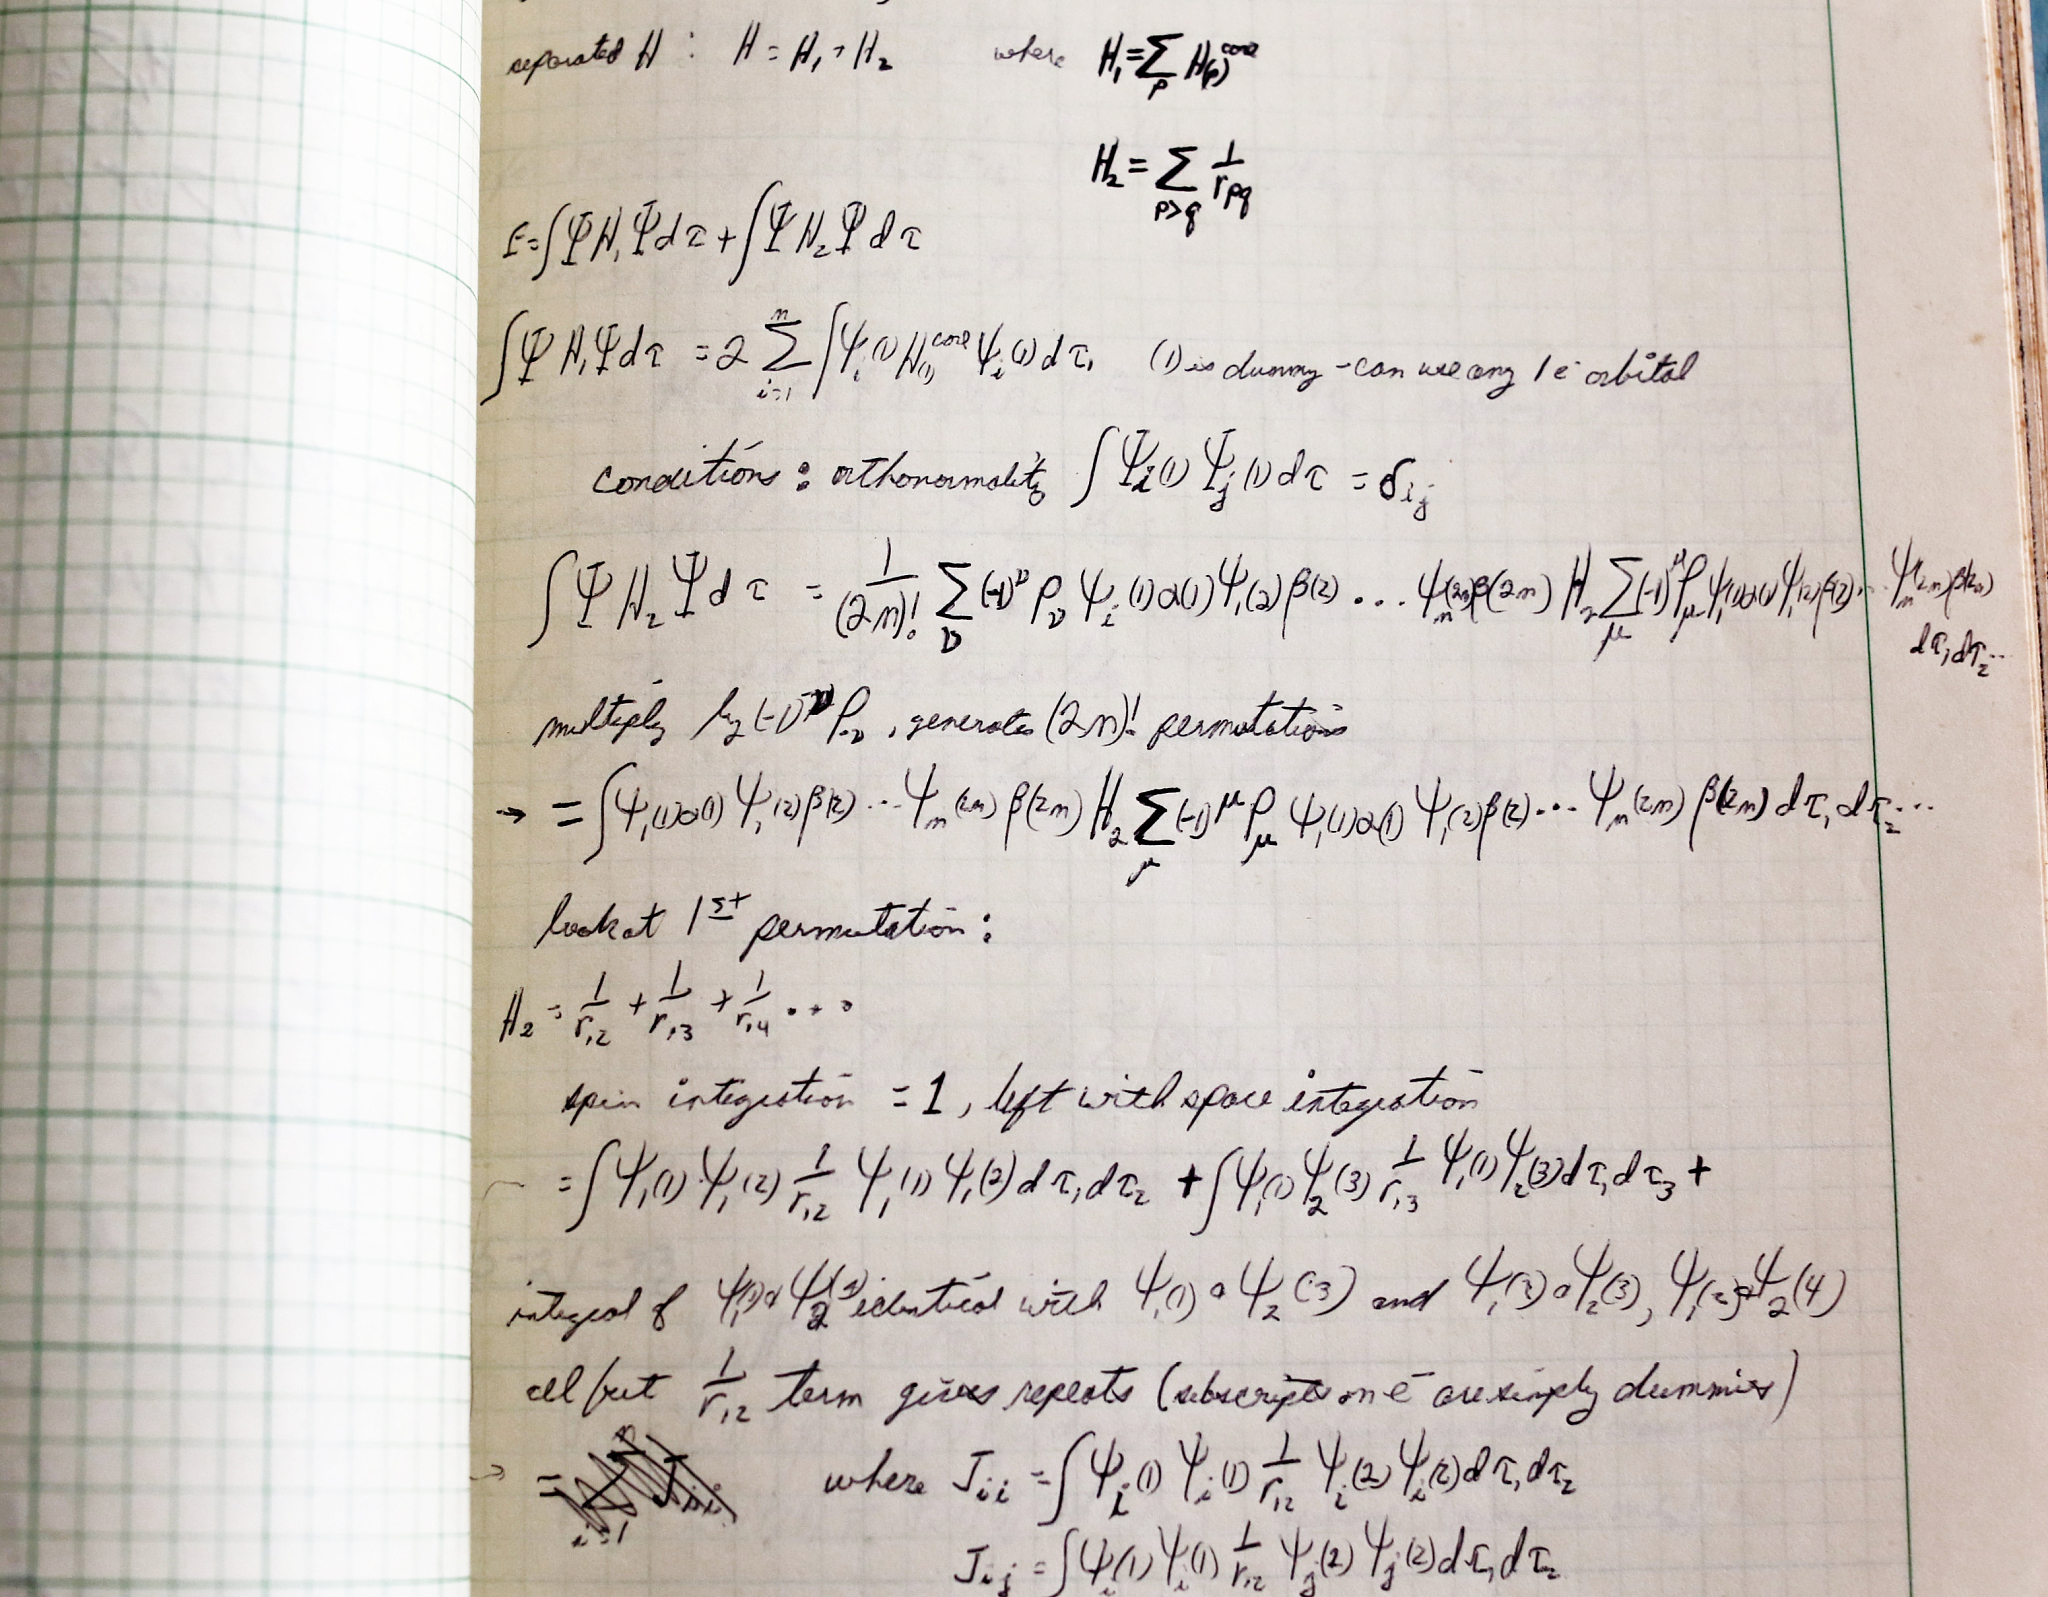 separated H : H = H₁ + H₂ where H₁ = Σ_p H(p)^core
H₂ = Σ_{p>q} 1/r_pq
E = ∫ΨH₁Ψdτ + ∫ΨH₂Ψdτ
∫ΨH₁Ψdτ = 2 Σ_{i=1}^n ∫ψ_i(1) H(1)^core ψ_i(1) dτ₁ (1) is dummy - can use any 1 e⁻ orbital
conditions : orthonormality ∫Ψ_i(1) Ψ_j(1) dτ = δ_ij
∫ΨH₂Ψdτ = 1/(2n)! Σ_ν (-1)^ν P_ν ψ_i(1)α(1)ψ₁(2)β(2) ... ψ_n(2n)β(2n) H₂ Σ_μ (-1)^μ P_μ ψ₁(1)α(1)ψ₁(2)β(2)... ψ_n(2n)β(2n)
dτ₁dτ₂...
multiply by (-1)^-ν P_-ν, generates (2n)! permutations
→ = ∫ψ₁(1)α(1) ψ₁(2)β(2) ... ψ_n(2n) β(2n) H₂ Σ_μ (-1)^μ P_μ ψ₁(1)α(1) ψ₁(2)β(2) ... ψ_n(2n) β(2n) dτ₁dτ₂...
look at 1st permutation :
H₂ = 1/r₁₂ + 1/r₁₃ + 1/r₁₄ ...
spin integration = 1, left with space integration
= ∫ψ₁(1) ψ₁(2) 1/r₁₂ ψ₁(1) ψ₁(2) dτ₁dτ₂ + ∫ψ₁(1) ψ₂(3) 1/r₁₃ ψ₁(1) ψ₂(3) dτ₁dτ₃ +
integral of ψ₁(1) ψ₂ identical with ψ₁(1) ψ₂(3) and ψ₁ ψ₂(3), ψ₁(2) ψ₂(4)
all but 1/r₁₂ term gives repeats (subscripts on e⁻ are simply dummies)
→ = where J_ii = ∫ψ_i(1) ψ_i(1) 1/r₁₂ ψ_i(2) ψ_i(2) dτ₁dτ₂
J_ij = ∫ψ_i(1) ψ_i(1) 1/r₁₂ ψ_j(2) ψ_j(2) dτ₁dτ₂